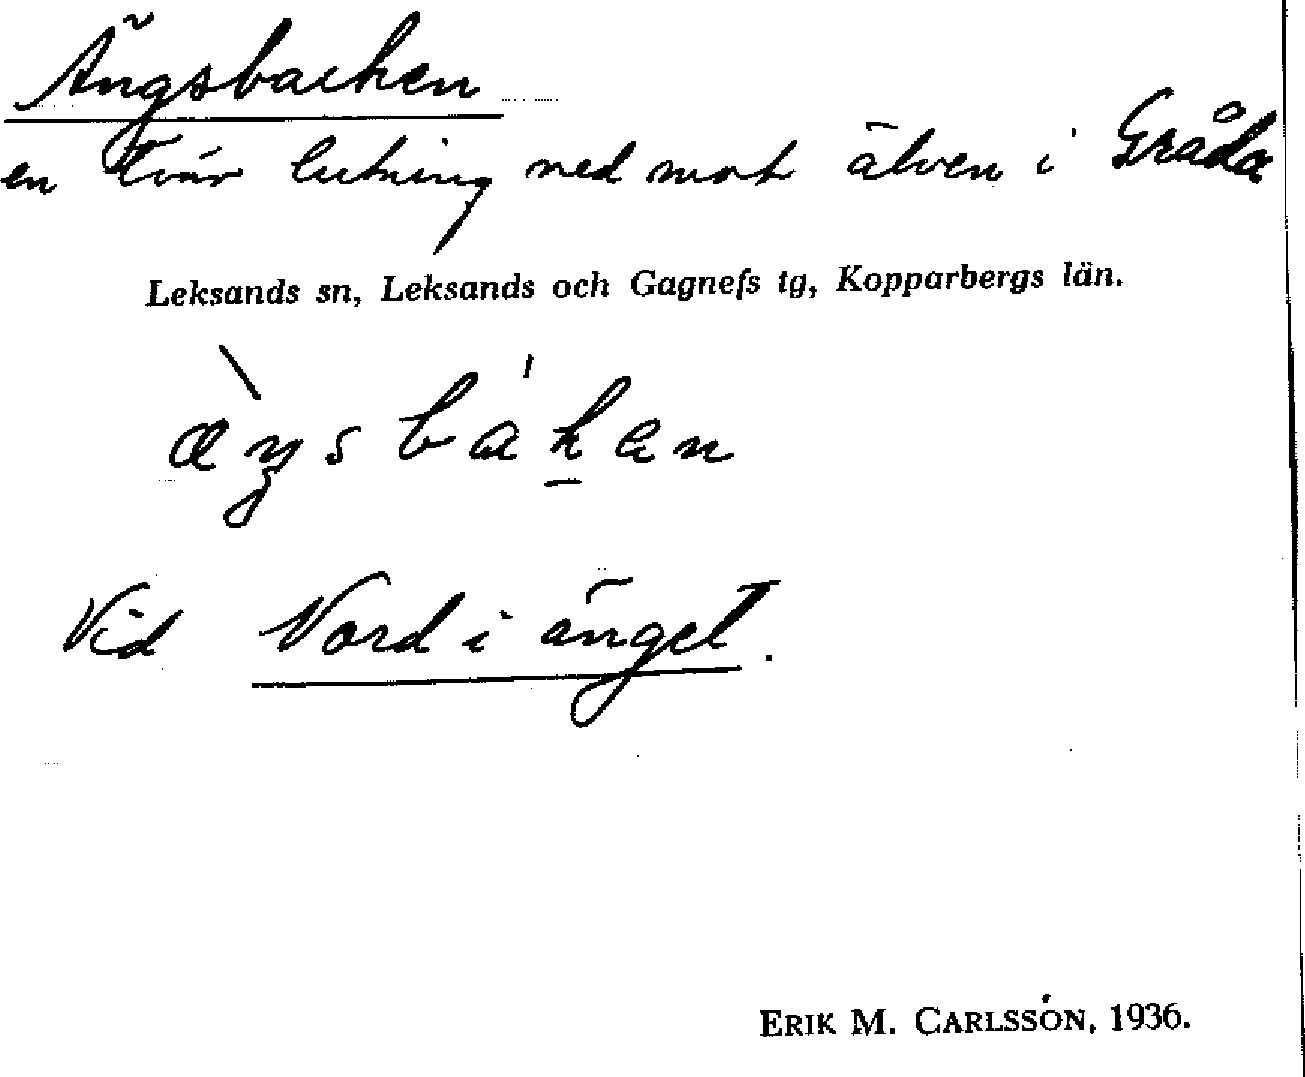 Ängsbacken
en tvär lutning ned mot älven i Gråda
Leksands sn, Leksands och Gagnefs tg, Kopparbergs län.
Vid Nord i änget.
ERIK M. CARLSSON, 1936.